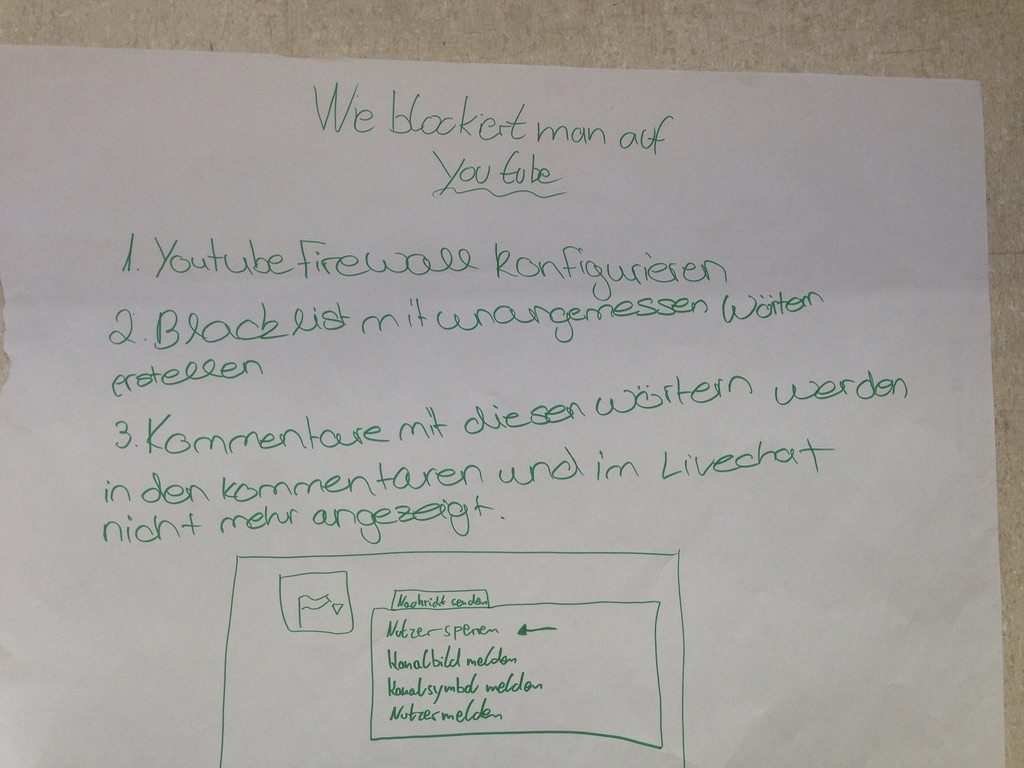 Wie blockiert man auf
YouTube
1. Youtube Firewall konfigurieren
2. Blacklist mit unangemessen Wörtern
erstellen
3. Kommentare mit diesen wörtern werden
in den kommentaren und im Livechat
nicht mehr angezeigt.
Nachricht senden
Nutzer sperren
Kanalbild melden
Kanalsymbol melden
Nutzer melden